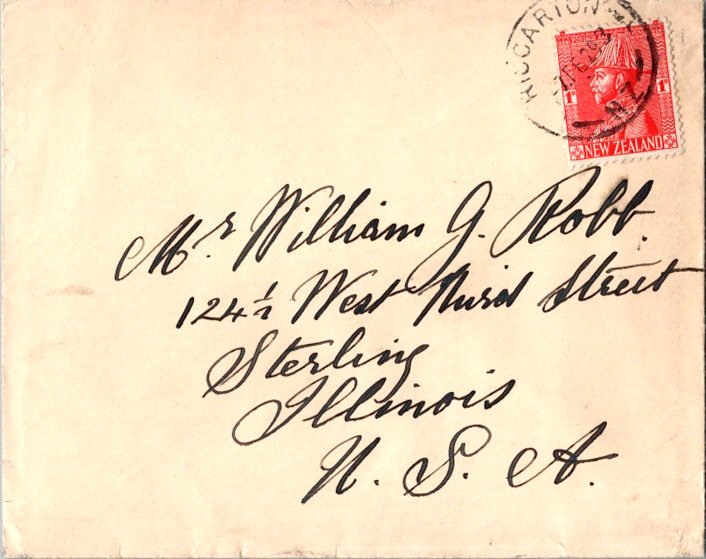 RICCARTON
N.Z.
1ᴰ 1ᴰ
NEW ZEALAND
Mr. William G. Robb.
124½ West Third Street
Sterling
Illinois
U. S. A.